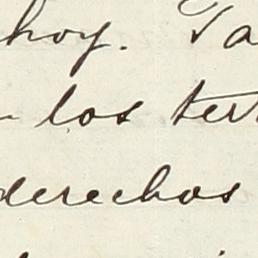 hoy. Ta
los ter
derechos